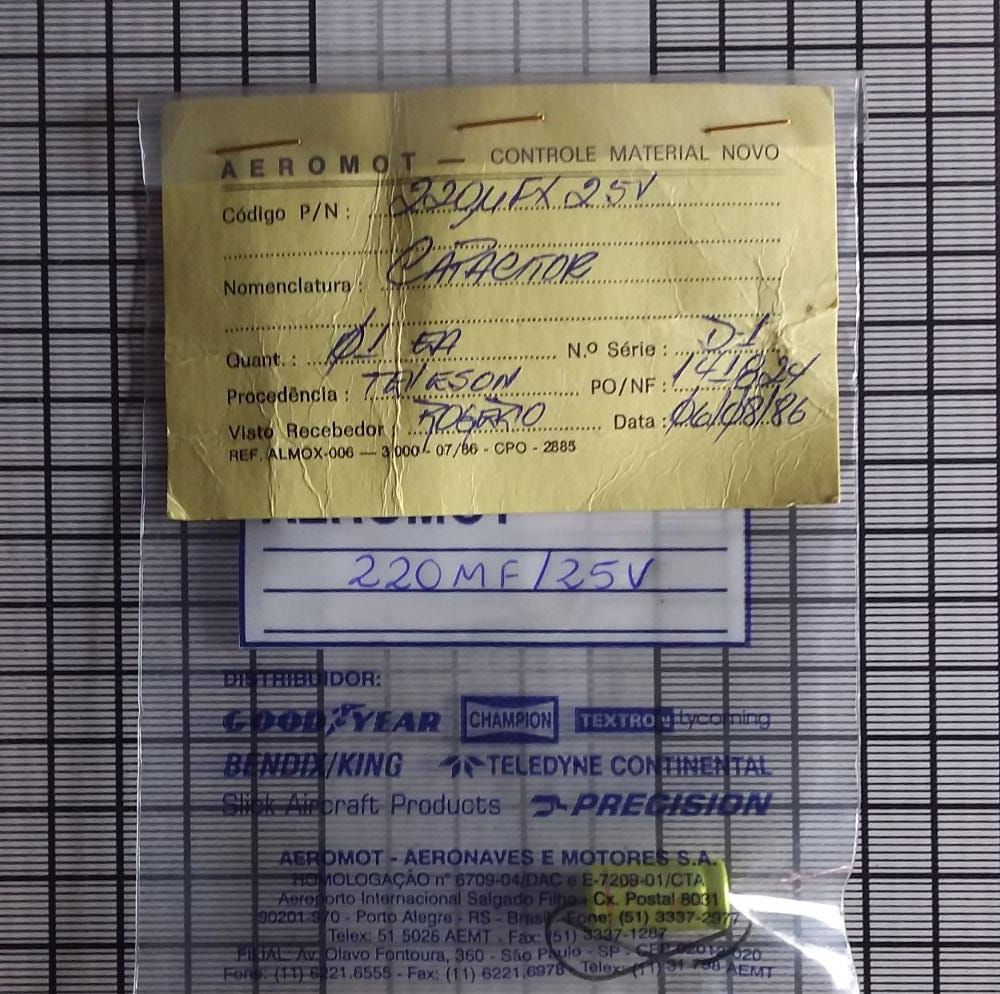 AEROMOT — CONTROLE MATERIAL NOVO
Código P/N : 220µFX25V
Nomenclatura : CAPACITOR
Quant. : 01 EA N.º Série : D-1
Procedência : TELESON PO/NF : 141824
Visto Recebedor : ROGÉRIO Data : 06/08/86
REF. ALMOX-006 — 3.000 - 07/86 - CPO - 2885
AEROMOT
220MF/25V
DISTRIBUIDOR:
GOODYEAR CHAMPION TEXTRON Lycoming
BENDIX/KING TELEDYNE CONTINENTAL
Slick Aircraft Products PRECISION
AEROMOT - AERONAVES E MOTORES S.A.
HOMOLOGAÇÂO n° 6709-04/DAC e E-7209-01/CTA
Aeroporto Internacional Salgado Filho - Cx. Postal 8031
90201-970 - Porto Alegre - RS - Brasil - Fone: (51) 3337-2977
Telex: 51 5026 AEMT - Fax: (51) 3337-1287
FILIAL: Av. Olavo Fontoura, 360 - São Paulo - SP - CEP 02012-020
Fone: (11) 6221.6555 - Fax: (11) 6221.6978 Telex: (11) 31 AEMT